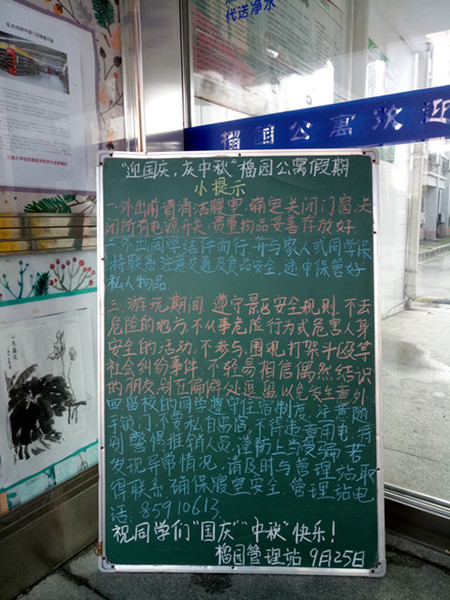 代送净水
园公寓欢迎
"迎国庆,庆中秋"榴园公寓假期
小提示
一.外出前请清洁寝室,确定关闭门窗,关
闭所有电源开关,贵重物品妥善存放好
二.外出同学结伴而行,并与家人或同学保
持联系,注意交通及食品安全,途中保管好
私人物品
三.游玩期间,遵守景区安全规则,不去
危险的地方,不从事危险行为或危害人身
安全的活动,不参与,围观打架斗殴等
社会纠纷事件,不轻易相信偶然结识
的朋友,别在偏僻处逗留,以免发生意外
四.留校的同学遵守住宿制度,注意随
手锁门,不要私自留宿,不得违章用电,特
别警惕推销人员,谨防上当受骗,若
发现异常情况,请及时与管理站取
得联系,确保寝室安全.管理站电
话:85910613.
祝同学们"国庆""中秋"快乐!
榴园管理站 9月25日